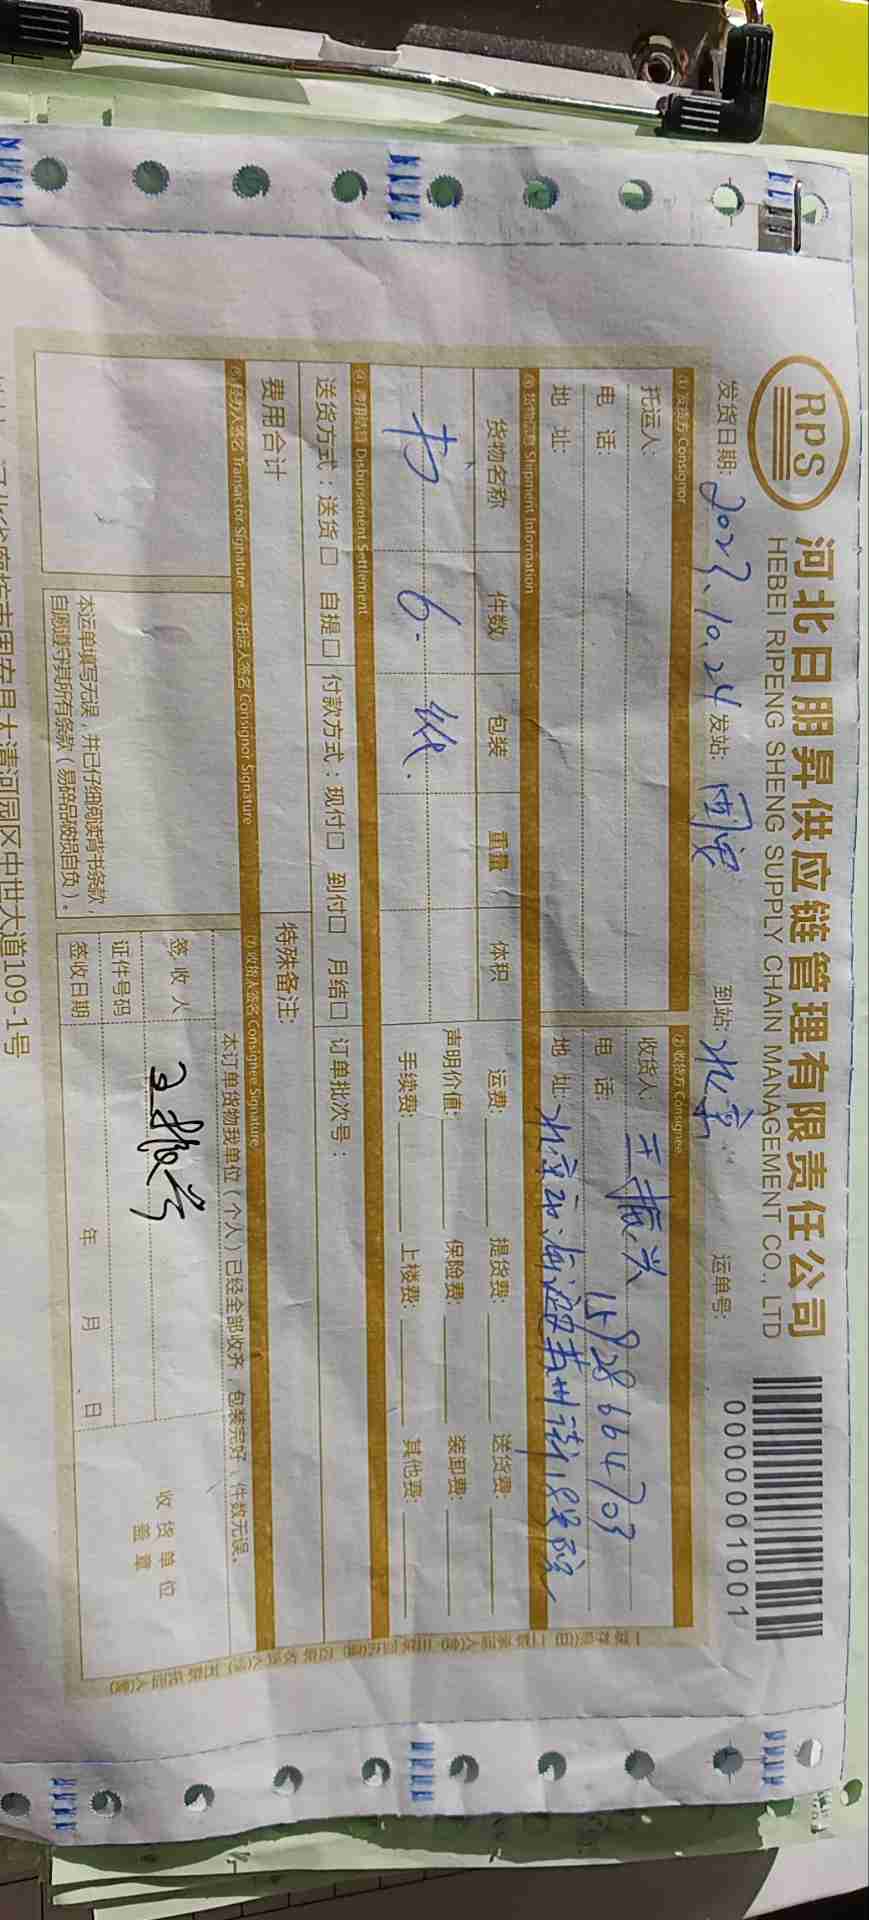 RPS
河北日朋昇供应链管理有限责任公司
HEBEI RIPENG SHENG SUPPLY CHAIN MANAGEMENT CO., LTD
0000001001
发货日期: 2023.10.24 发站: 固安 到站: 北京 运单号:
①发货方 Consignor ②收货方 Consignee
托运人: 收货人: 王振兴
电 话: 电 话: 15928664703
地 址: 地 址: 北京市海淀苏州街18号院
③货物信息 Shipment Information
货物名称 件数 包装 重量 体积 运费: 提货费: 送货费:
6. 纸. 声明价值: 保险费: 装卸费:
手续费: 上楼费: 其他费:
④费用结算 Disbursement Settlement
送货方式:送货□ 自提□ 付款方式:现付□ 到付□ 月结□ 订单批次号:
费用合计 特殊备注:
⑤经办人签名 Transactor Signature ⑥托运人签名 Consignor Signature ⑦收货人签名 Consignee Signature
本订单货物我单位(个人)已经全部收齐,包装完好,件数无误。
签 收 人 王振兴
证件号码
签收日期 年 月 日
收货单位
盖章
本运单填写无误,并已仔细阅读背书条款,
自愿遵守其所有条款(易碎品破损自负)。
大清河园区中世大道109-1号